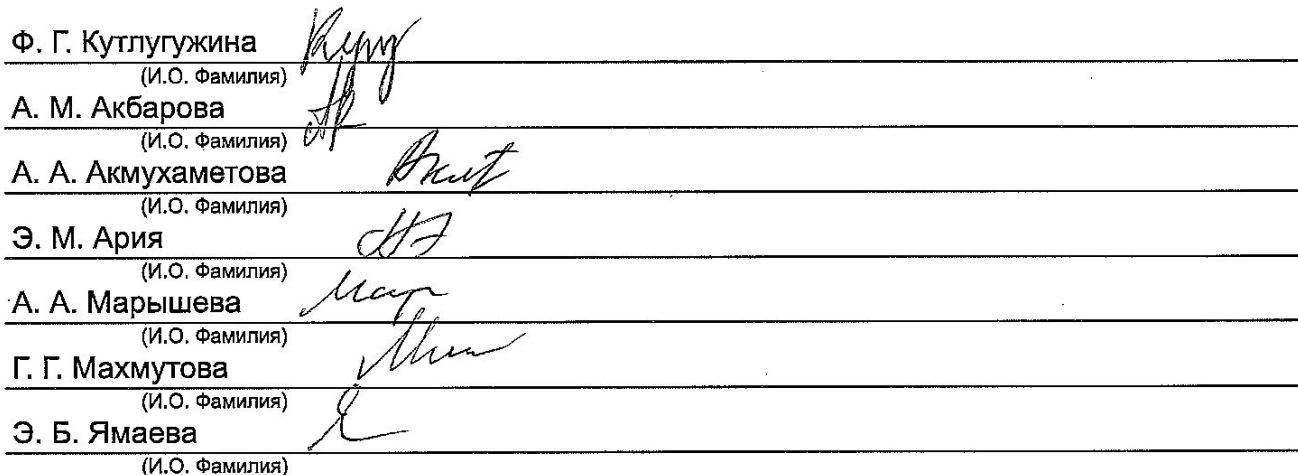 Ф. Г. Кутлугужина
(И.О. Фамилия)
А. М. Акбарова
(И.О. Фамилия)
А. А. Акмухаметова
(И.О. Фамилия)
Э. М. Ария
(И.О. Фамилия)
А. А. Марышева
(И.О. Фамилия)
Г. Г. Махмутова
(И.О. Фамилия)
Э. Б. Ямаева
(И.О. Фамилия)